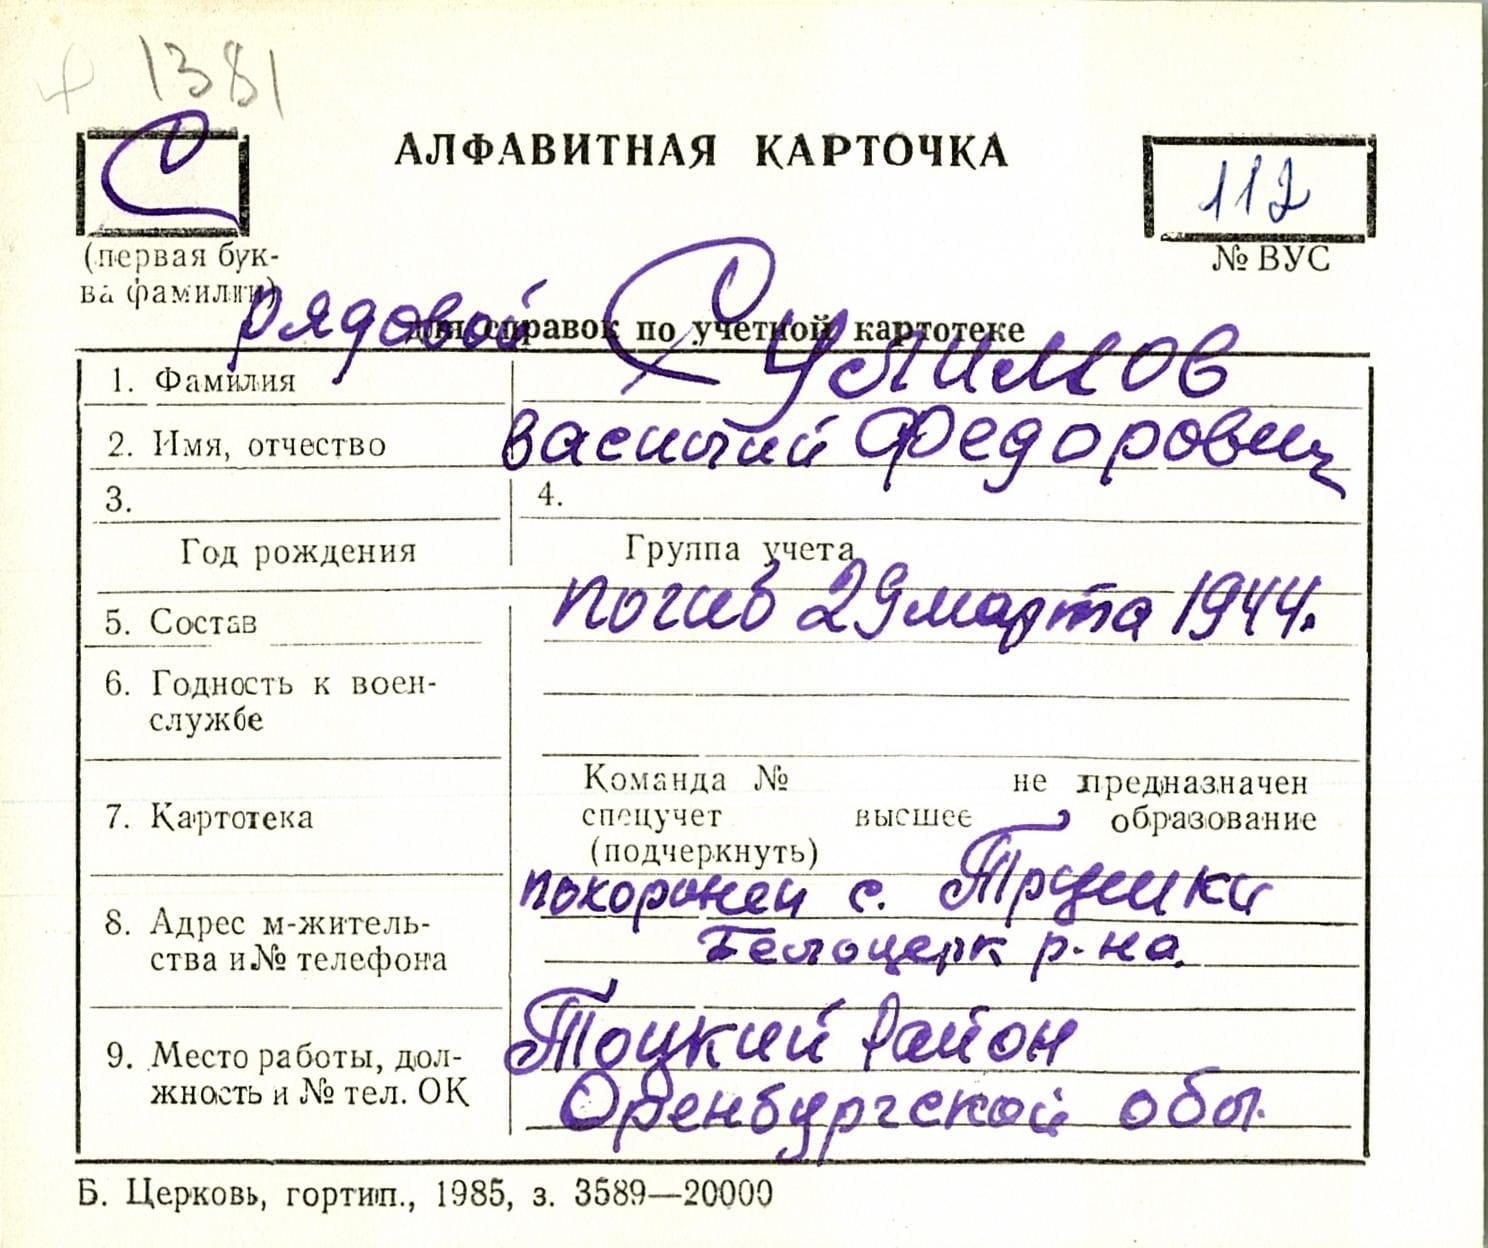 1381
С
АЛФАВИТНАЯ КАРТОЧКА
112
(первая бук-
ва фамилии)
№ ВУС
рядовой Сулимов
для справок по учетной картотеке
1. Фамилия
2. Имя, отчество Василий Федорович
3. 4.
Год рождения Группа учета
погиб 29 марта 1944г.
5. Состав
6. Годность к воен-
службе
Команда № не предназначен
7. Картотека спецучет высшее образование
(подчеркнуть)
похоронен с. Трушки
8. Адрес м-житель-
ства и № телефона Белоцерк р-на.
Тоцкий район
9. Место работы, дол-
жность и № тел. ОК Оренбургской обл.
Б. Церковь, гортип., 1985, з. 3589—20000